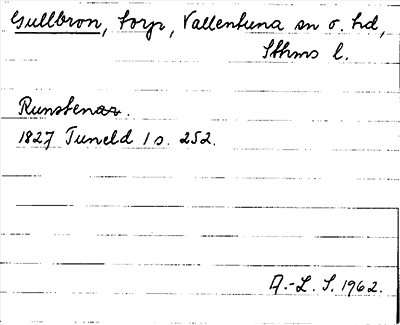 Gullbron, torp, Vallentuna sn o. hd,
Sthms l.
Runstenar.
1827 Tuneld 1 s. 252.
A.-L. S. 1962.